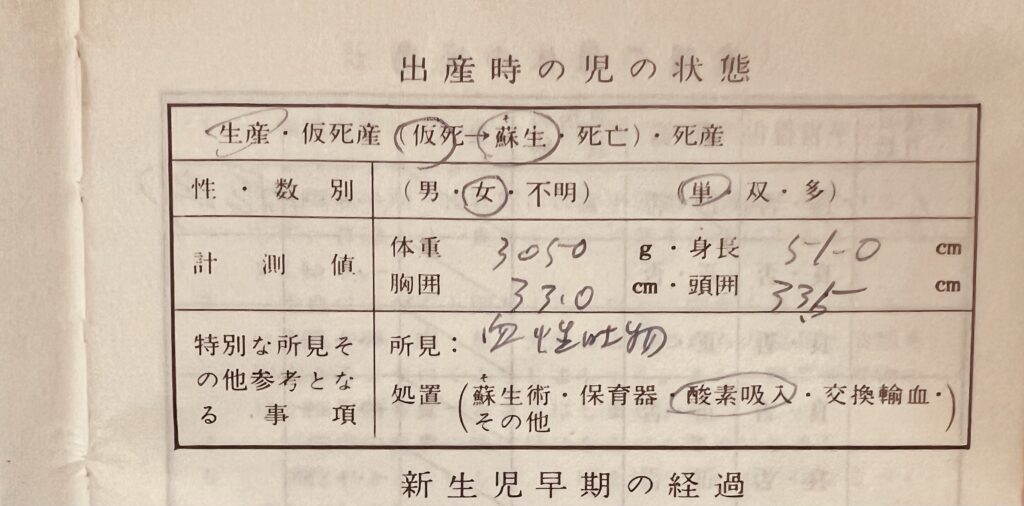 出産時の児の状態
生産・仮死産(仮死→蘇生・死亡)・死産
性・数別 (男・女・不明) (単・双・多)
計測値 体重 3050 g・身長 51.0 cm
胸囲 33.0 cm・頭囲 33.5 cm
特別な所見その他参考となる事項 所見: 血性吐物
処置(蘇生術・保育器・酸素吸入・交換輸血・
その他)
新生児早期の経過